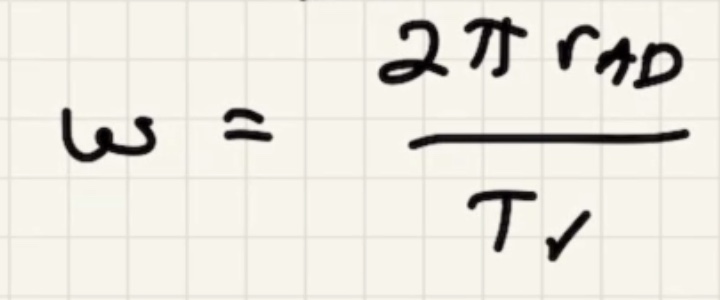 ω = 2π rAD / T✓